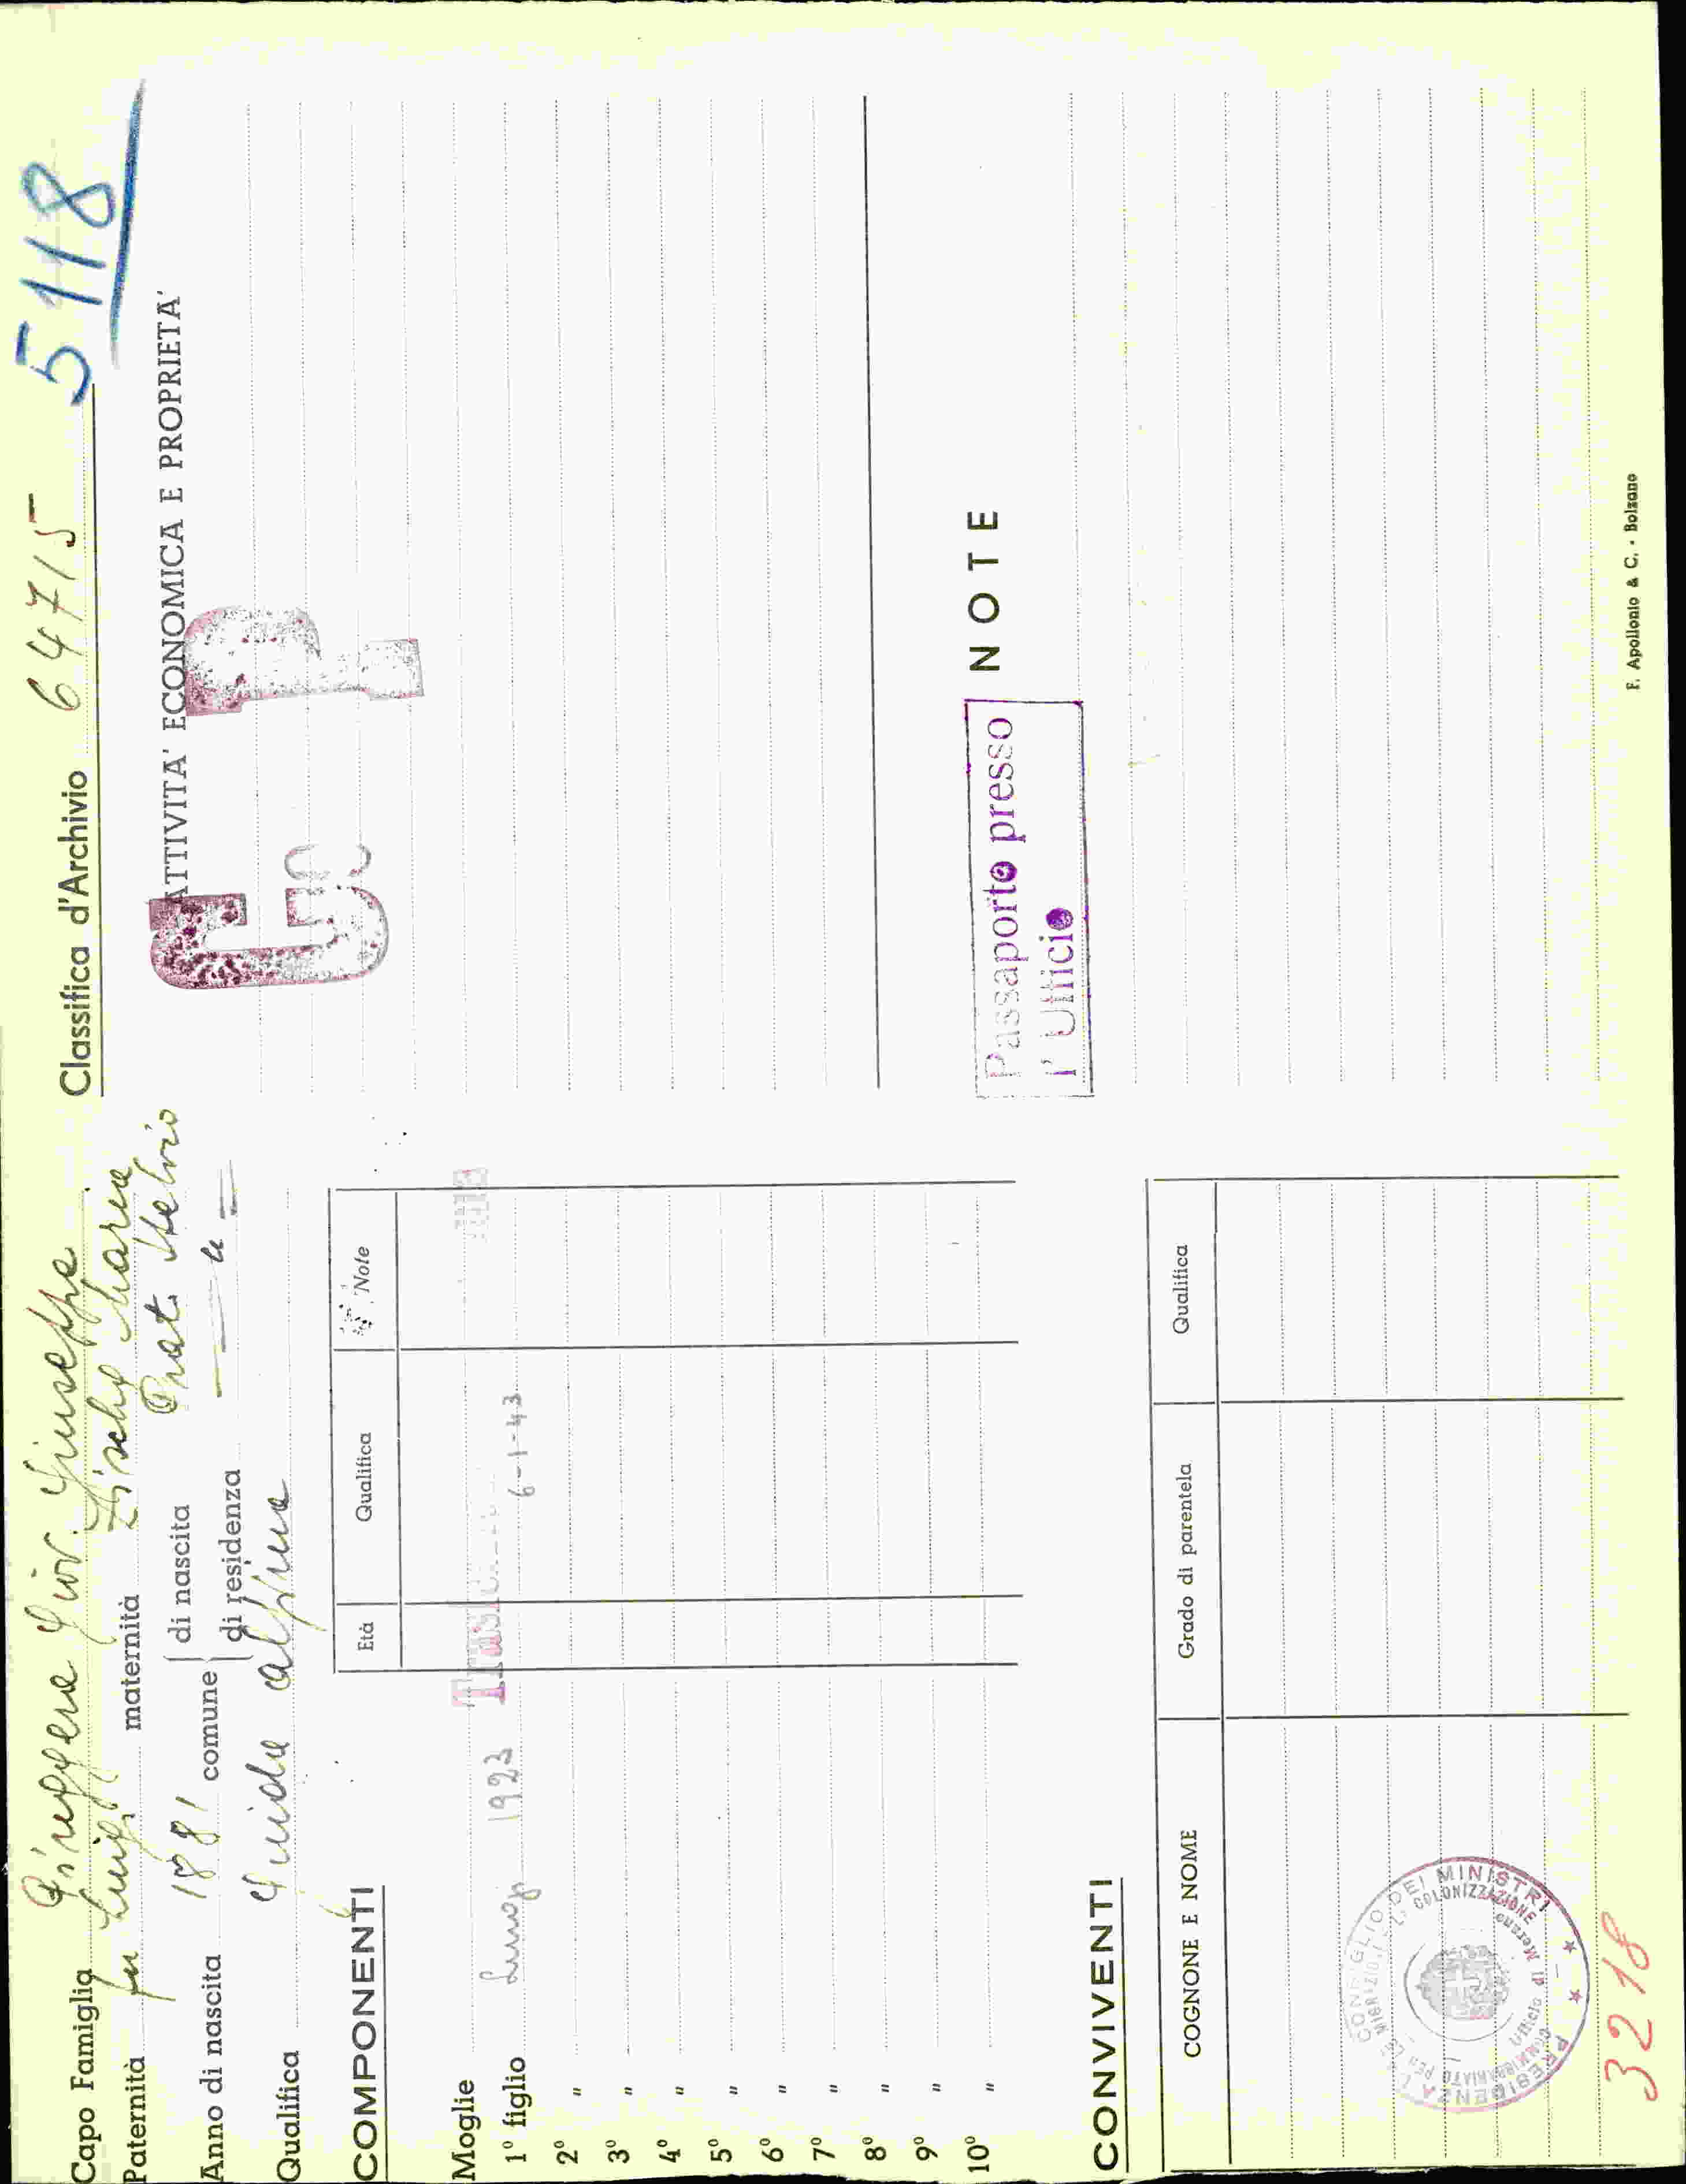 Capo Famiglia Pinggera Giov. Giuseppe
Paternità fu Luigi maternità Zischg Maria
Anno di nascita 1881 comune di nascita Prato Stelvio
di residenza — " —
Qualifica Guida alpina
COMPONENTI
Età Qualifica Note
Moglie
1° figlio Luigi 1923 6-1-43
2° "
3° "
4° "
5° "
6° "
7° "
8° "
9° "
10° "
CONVIVENTI
COGNONE E NOME Grado di parentela Qualifica
PRESIDENZA CONSIGLIO DEI MINISTRI
COMMISSARIATO PER LE MIGRAZIONI COLONIZZAZIONE
Ufficio di Merano
3218
Classifica d'Archivio 64715
5118
ATTIVITA' ECONOMICA E PROPRIETA'
G P
NOTE
Passaporto presso
l' Ufficio
F. Apollonio & C. - Bolzano